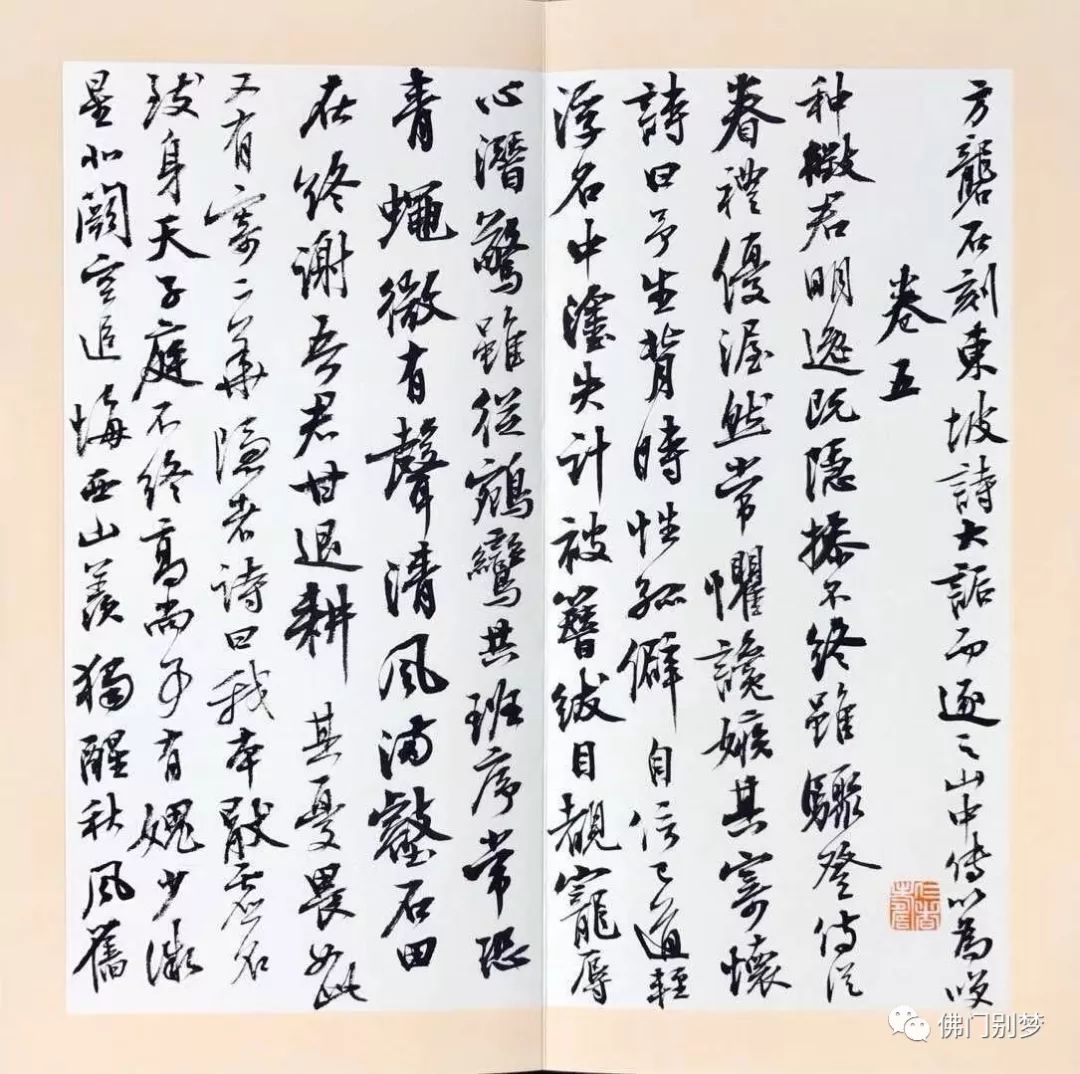 方礱石刻東坡詩大詬而逐之山中傳以為咲
卷五
种徵君明逸既隱操不終雖驟登侍從
眷禮優渥然常懼讒嫉其寄懷
詩曰予生背時性孤僻自信已道輕
浮名中塗失計被簪紱目覩寵辱
心潛驚雖從鵷鸞共班序常恐
青蠅微有聲清風滿壑石田
在終謝吾君甘退耕其憂畏如此
又有寄二華隱者詩曰我本厭虛名
致身天子庭不終高尚事有媿少微
星北闕空追悔西山羨獨醒秋風舊
佛门别梦